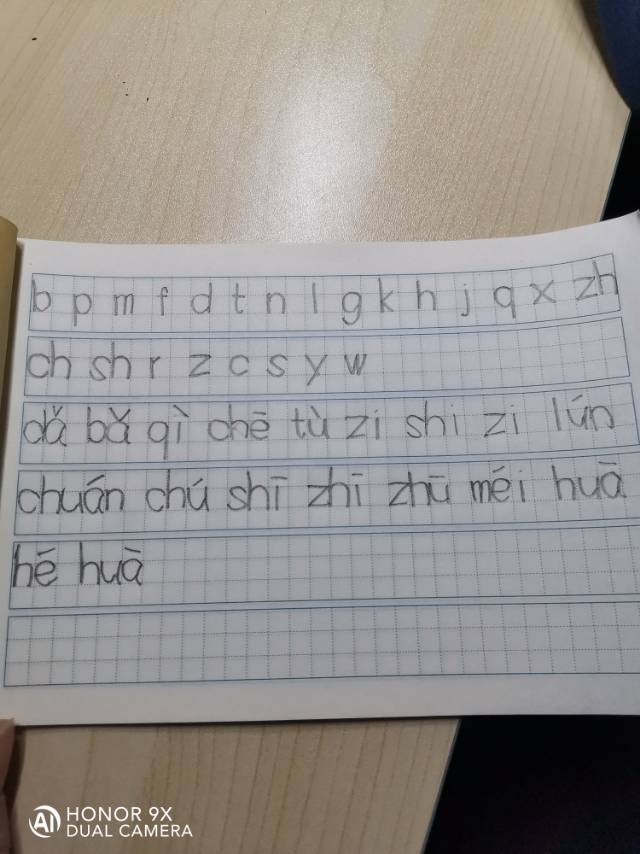 b p m f d t n l g k h j q x zh
ch sh r z c s y w
dǎ bǎ qì chē tù zi shi zi lún
chuán chú shī zhī zhū méi huā
hē huā
HONOR 9X
DUAL CAMERA